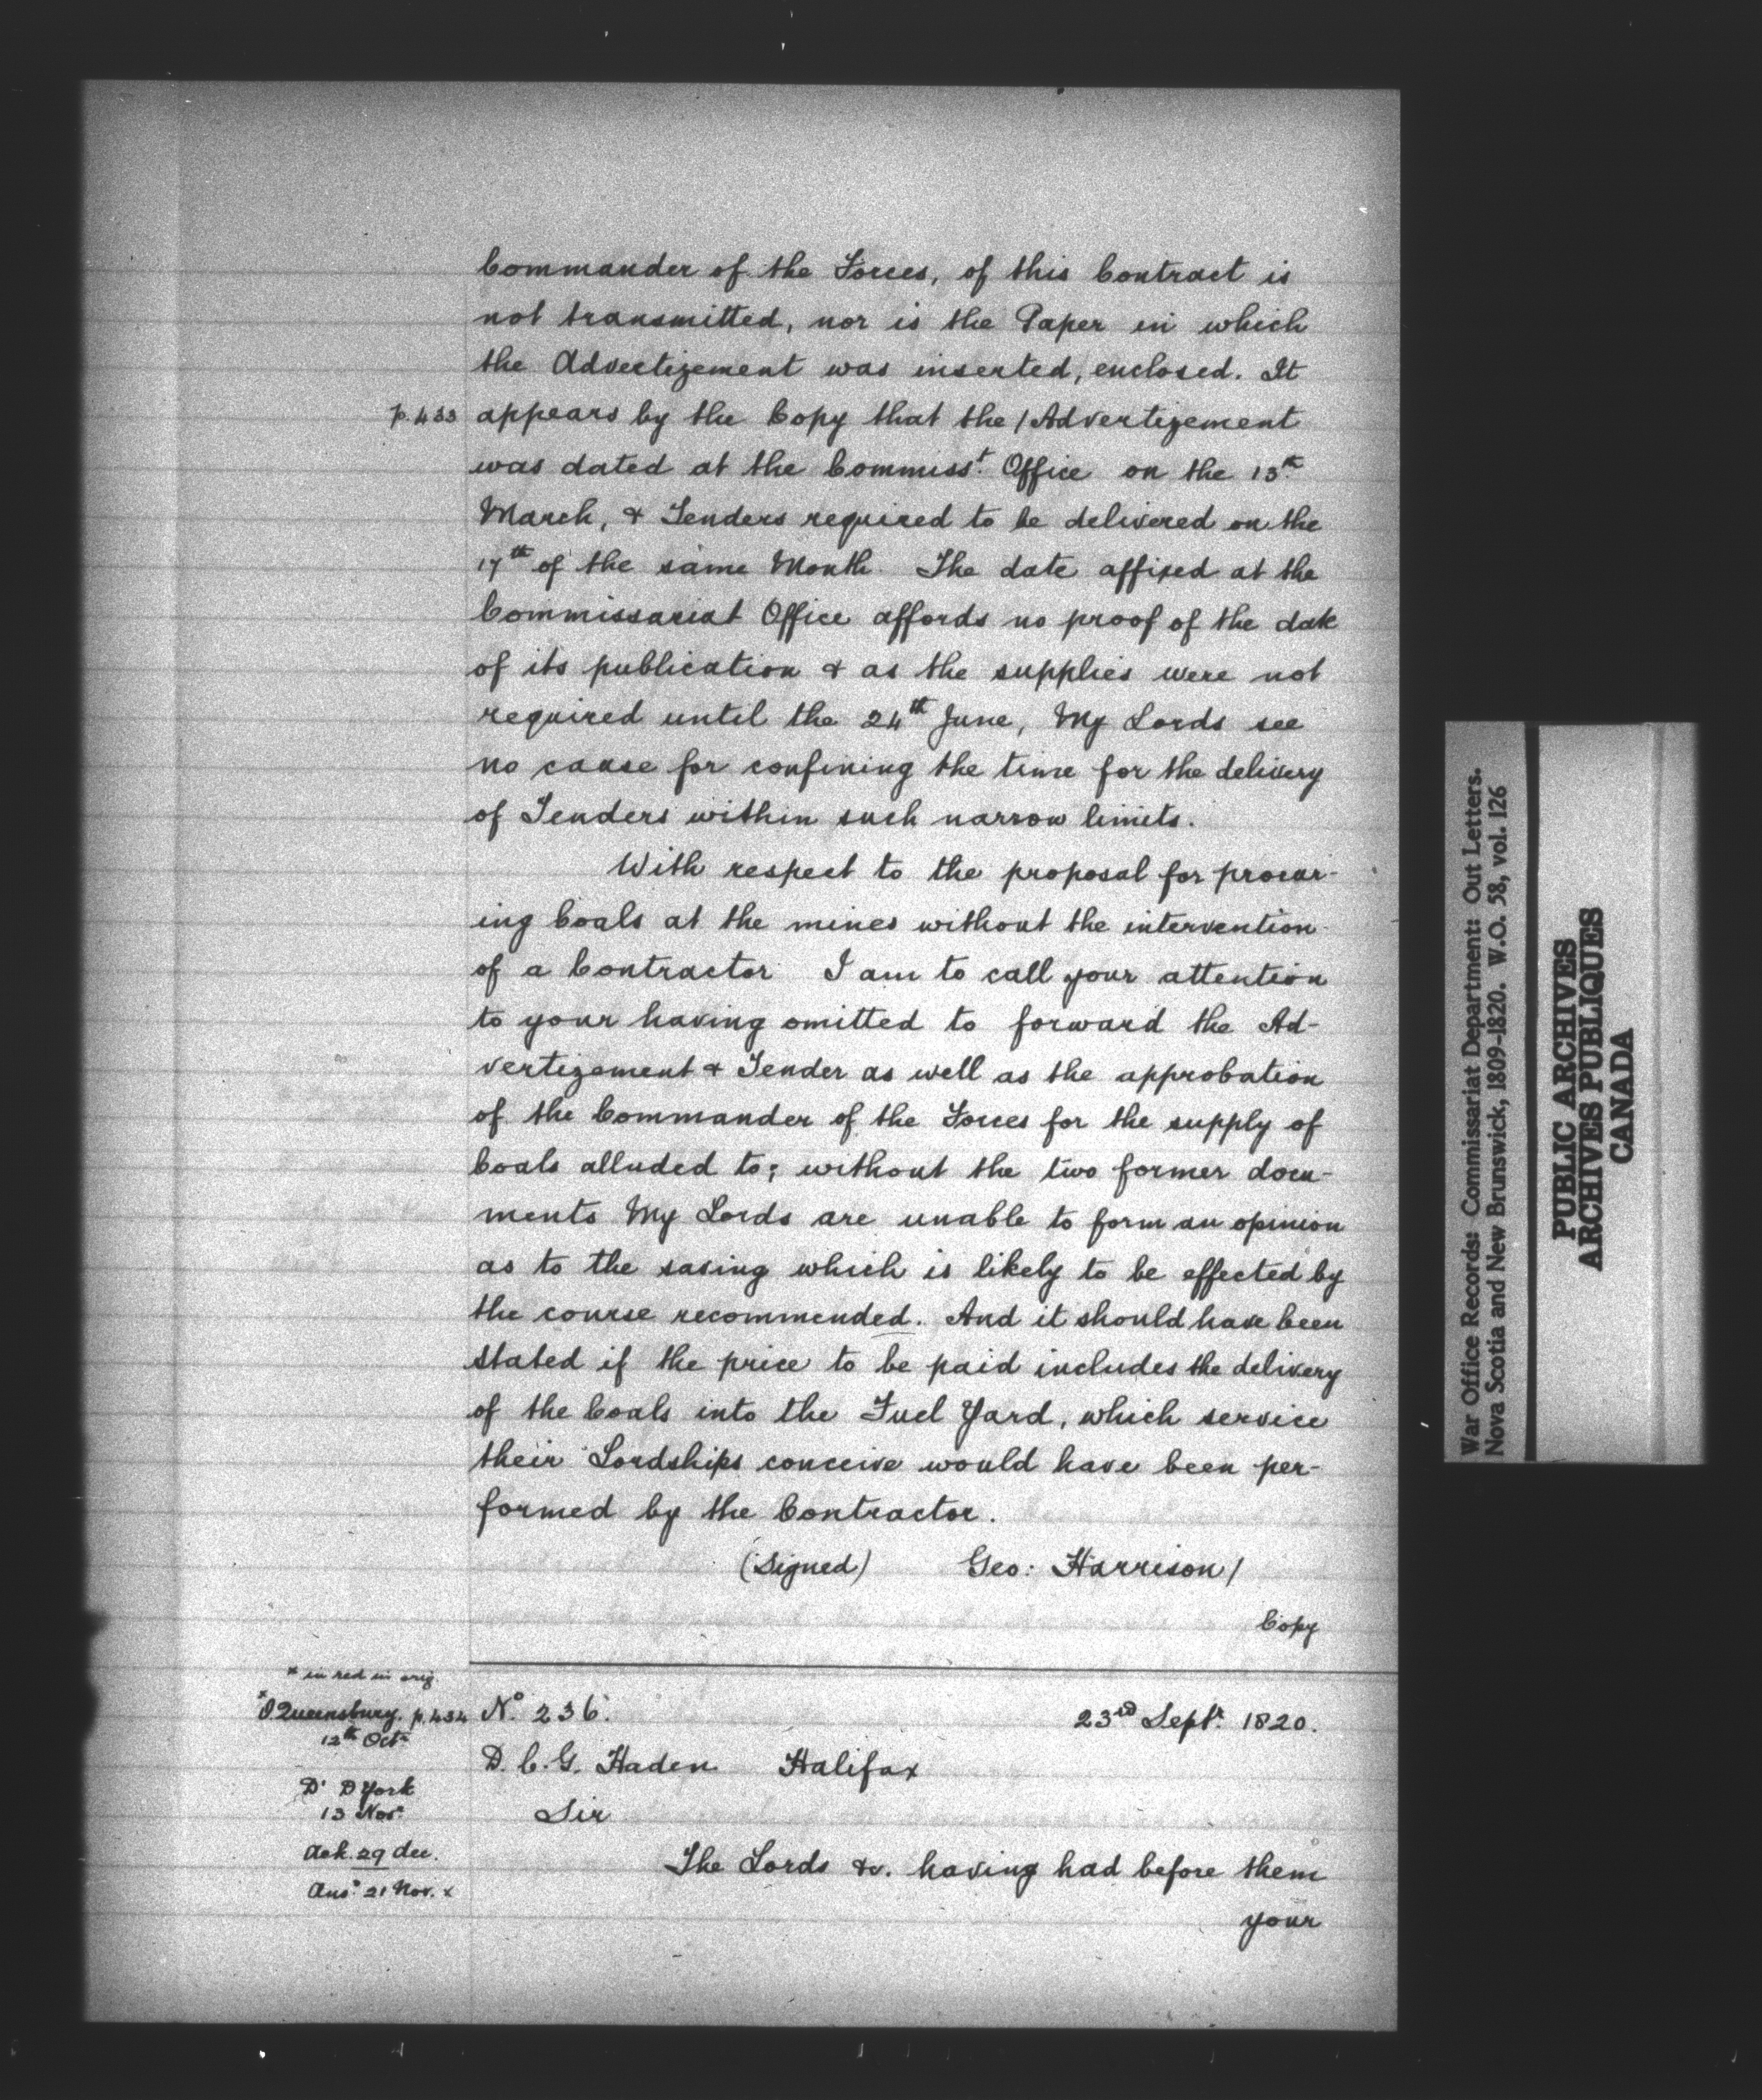 Commander of the Forces, of this Contract is
not transmitted, nor is the Paper in which
the Advertizement was inserted, enclosed. It
p. 433 appears by the Copy that the / Advertizement
was dated at the Commisst. Office on the 13th
March, & Tenders required to be delivered on the
17th of the same Month. The date affixed at the
Commissariat Office affords no proof of the date
of its publication & as the supplies were not
required until the 24th June, My Lords see
no cause for confining the time for the delivery
of Tenders within such narrow limits.
With respect to the proposal for procur-
ing Coals at the mines without the intervention
of a Contractor I am to call your attention
to your having omitted to forward the Ad-
vertizement & Tender as well as the approbation
of the Commander of the Forces for the supply of
Coals alluded to; without the two former docu-
ments My Lords are unable to form an opinion
as to the saving which is likely to be effected by
the course recommended. And it should have been
stated if the price to be paid includes the delivery
of the Coals into the Fuel Yard, which service
their Lordships conceive would have been per-
formed by the Contractor.
(Signed) Geo: Harrison /
Copy
x in red in orig.
x Queensbury. p. 434
12th Octr
D. D York
13 Novr
Ack. 29 dec.
Ansd 21 Nov. x
No. 236. 23rd Septr. 1820.
D. C. G. Haden Halifax
Sir
The Lords &c. having had before them
your
War Office Records: Commissariat Department: Out Letters.
Nova Scotia and New Brunswick, 1809-1820. W.O. 58, vol. 126
PUBLIC ARCHIVES
ARCHIVES PUBLIQUES
CANADA